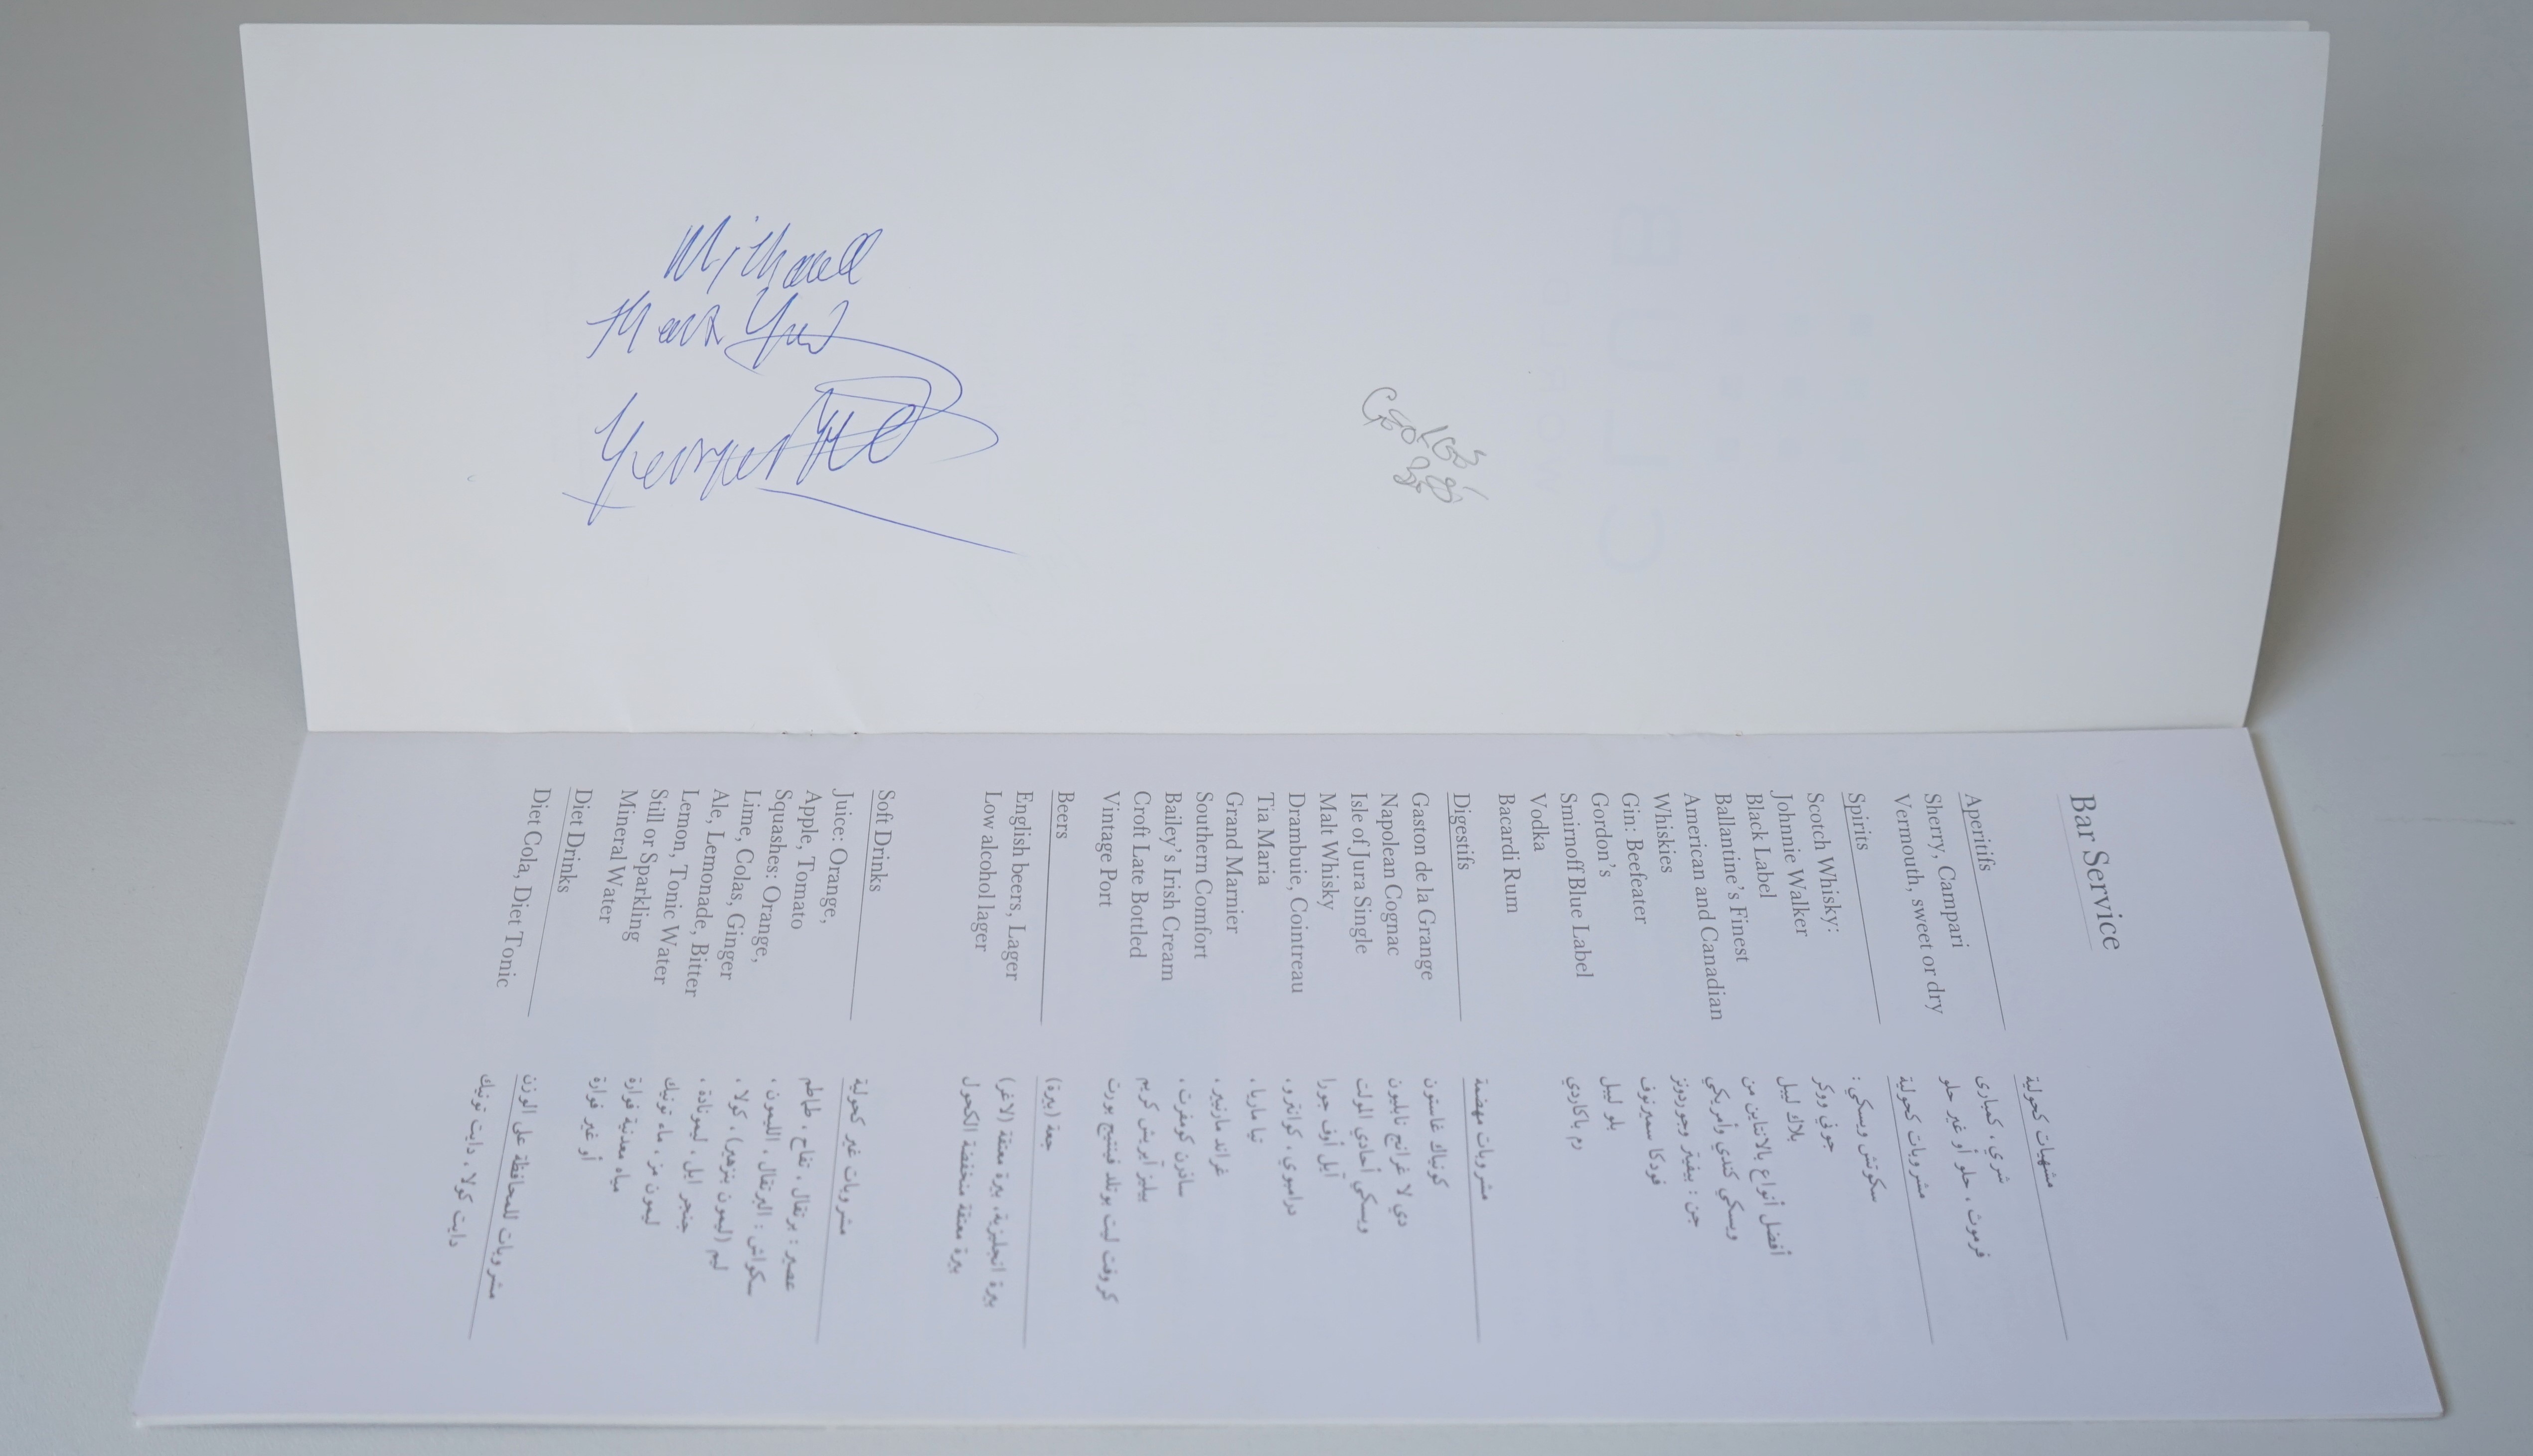 Michael
Thank You
George
GEORGE
Bar Service
Aperitifs
Sherry, Campari
Vermouth, sweet or dry
Spirits
Scotch Whisky:
Johnnie Walker
Black Label
Ballantine's Finest
American and Canadian
Whiskies
Gin: Beefeater
Gordon's
Smirnoff Blue Label
Vodka
Bacardi Rum
Digestifs
Gaston de la Grange
Napolean Cognac
Isle of Jura Single
Malt Whisky
Drambuie, Cointreau
Tia Maria
Grand Marnier
Southern Comfort
Bailey's Irish Cream
Croft Late Bottled
Vintage Port
Beers
English beers, Lager
Low alcohol lager
Soft Drinks
Juice: Orange,
Apple, Tomato
Squashes: Orange,
Lime, Colas, Ginger
Ale, Lemonade, Bitter
Lemon, Tonic Water
Still or Sparkling
Mineral Water
Diet Drinks
Diet Cola, Diet Tonic
مشهيات كحولية
شري ، كمباري
فرموث ، حلو أو غير حلو
مشروبات كحولية
سكوتش ويسكي :
جوني ووكر
بلاك ليبل
أفضل أنواع بالانتاين من
ويسكي كندي وأمريكي
جن : بيفيتر وجوردونز
فودكا سميرنوف
بلو ليبل
رم باكاردي
مشروبات مهضمة
كونياك غاستون
دي لا غرانج نابليون
ويسكي أحادي المولت
آيل أوف جورا
درامبوي ، كوانترو ،
تيا ماريا ،
غراند مارنييه ،
ساذرن كومفرت ،
بيليز آيريش كريم
كروفت ليت بوتلد فينتيج بورت
جعة (بيرة)
بيرة انجليزية، بيرة معتقة (لاغر)
بيرة معتقة منخفضة الكحول
مشروبات غير كحولية
عصير : برتقال ، تفاح ، طماطم
سكواش : البرتقال ، الليمون ،
ليم (ليمون بنزهير) ، كولا ،
جنجر ايل ، ليمونادة ،
ليمون مز ، ماء تونيك
مياه معدنية فوارة
أو غير فوارة
مشروبات للمحافظة على الوزن
دايت كولا ، دايت تونيك